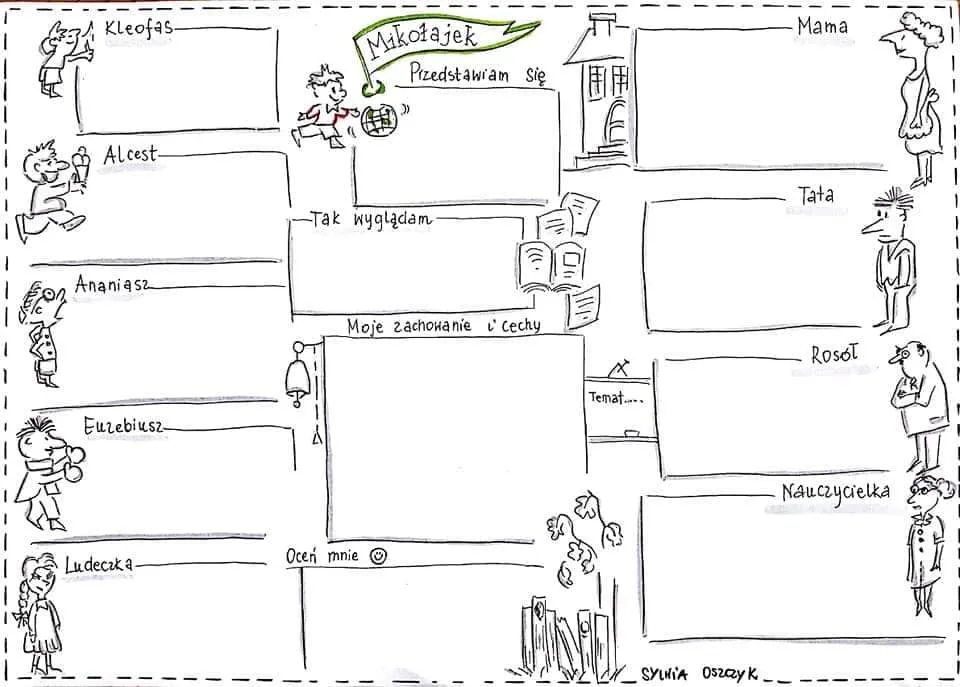 Kleofas
Mikołajek
Mama
Przedstawiam się
Alcest
Tata
Tak wyglądam
Ananiasz
Moje zachowanie i cechy
Rosół
Temat.....
Euzebiusz
Nauczycielka
Oceń mnie ☺
Ludeczka
SYLWIA OSZCZYK